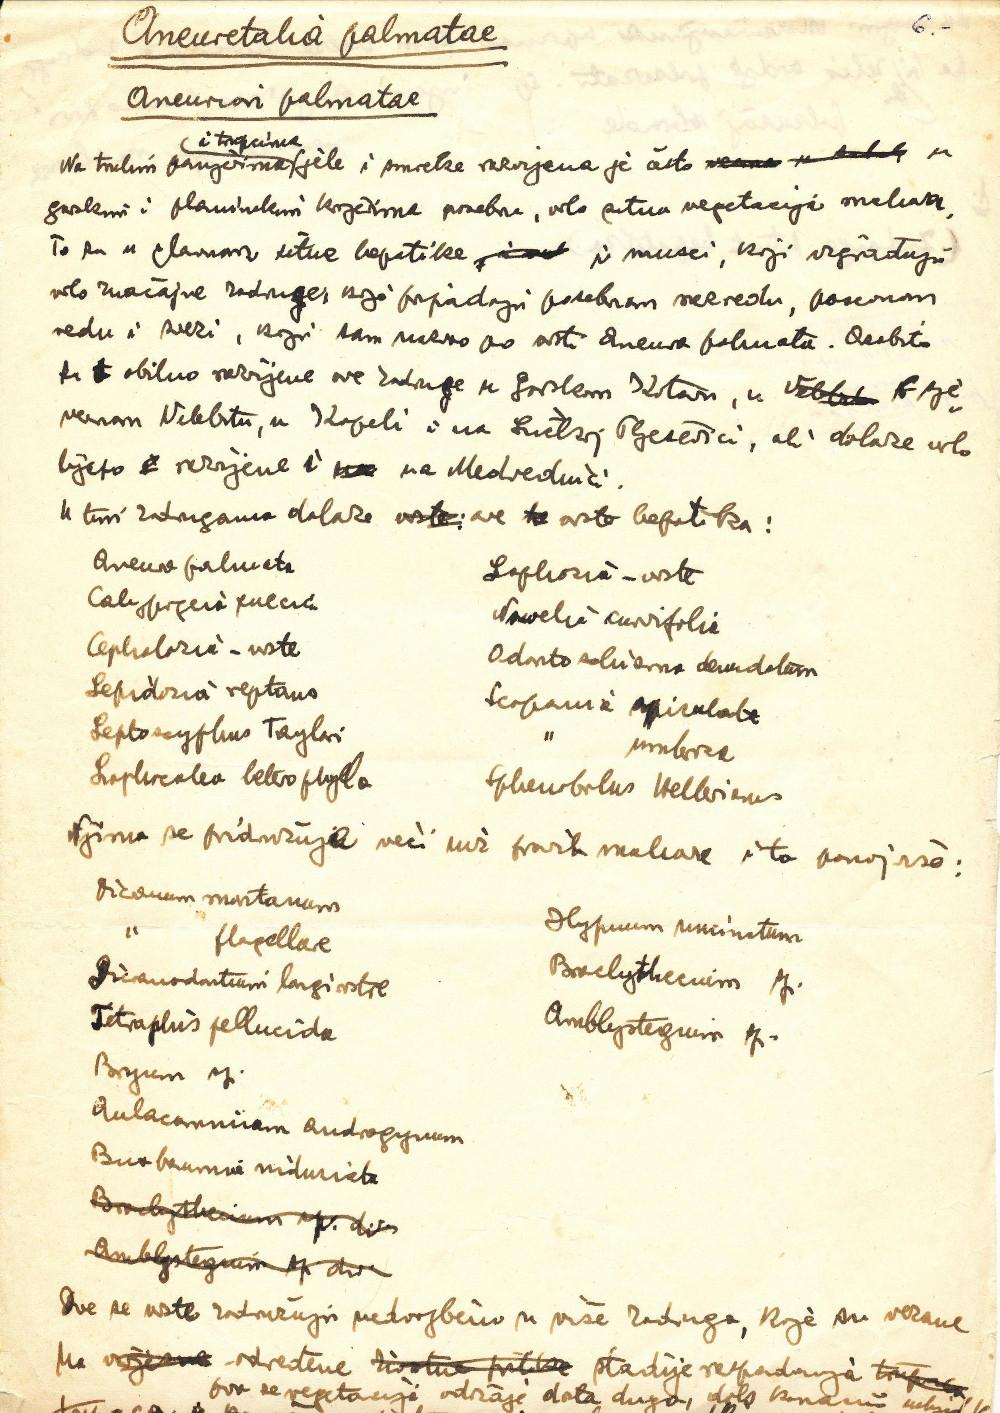 6.-
Aneuretalia palmatae
Aneurion palmatae
i trupcima
Na trulim panjevima jele i smreke razvijena je često u
gorskim i planinskim krajevima posebna, vrlo sitna vegetacija mahova.
To su u glavnom sitne hepatike i musci, koji izgrađuju
vrlo značajne zadruge, koje pripadaju posebnom razredu, posebnom
redu i svezi, koju sam nazvao po vrsti Aneura palmata. Osobito
su obilno razvijene ove zadruge u Gorskom Kotaru, u Sje-
vernom Velebitu, u Kapeli i na Ličkoj Plješevici, ali dolaze vrlo
lijepo razvijene i na Medvednici.
U tim zadrugama dolaze ove vrste hepatika:
Aneura palmata
Calypogeia suecica
Cephalozia - vrste
Lepidozia reptans
Leptoscyphus Taylori
Lophocolea heterophylla
Lophozia - vrste
Nowelia curvifolia
Odontoschisma denudatum
Scapania apiculata
" umbrosa
Sphenobolus Hellerianus
Njima se pridružuje veći niz pravih mahova i to ponajviše:
Dicranum montanum
" flagellare
Dicranodontium longirostre
Tetraphis pellucida
Bryum sp.
Aulacomnium androgynum
Buxbaumia indusiata
Brachythecium sp. div.
Amblystegium sp. div.
Hypnum uncinatum
Brachythecium sp.
Amblystegium sp.
Ove se vrste zadružuju nedvojbeno u više zadruga, koje su vezane
na određene stadije raspadanja
ova se vegetacija održaje dosta dugo, dok konačno